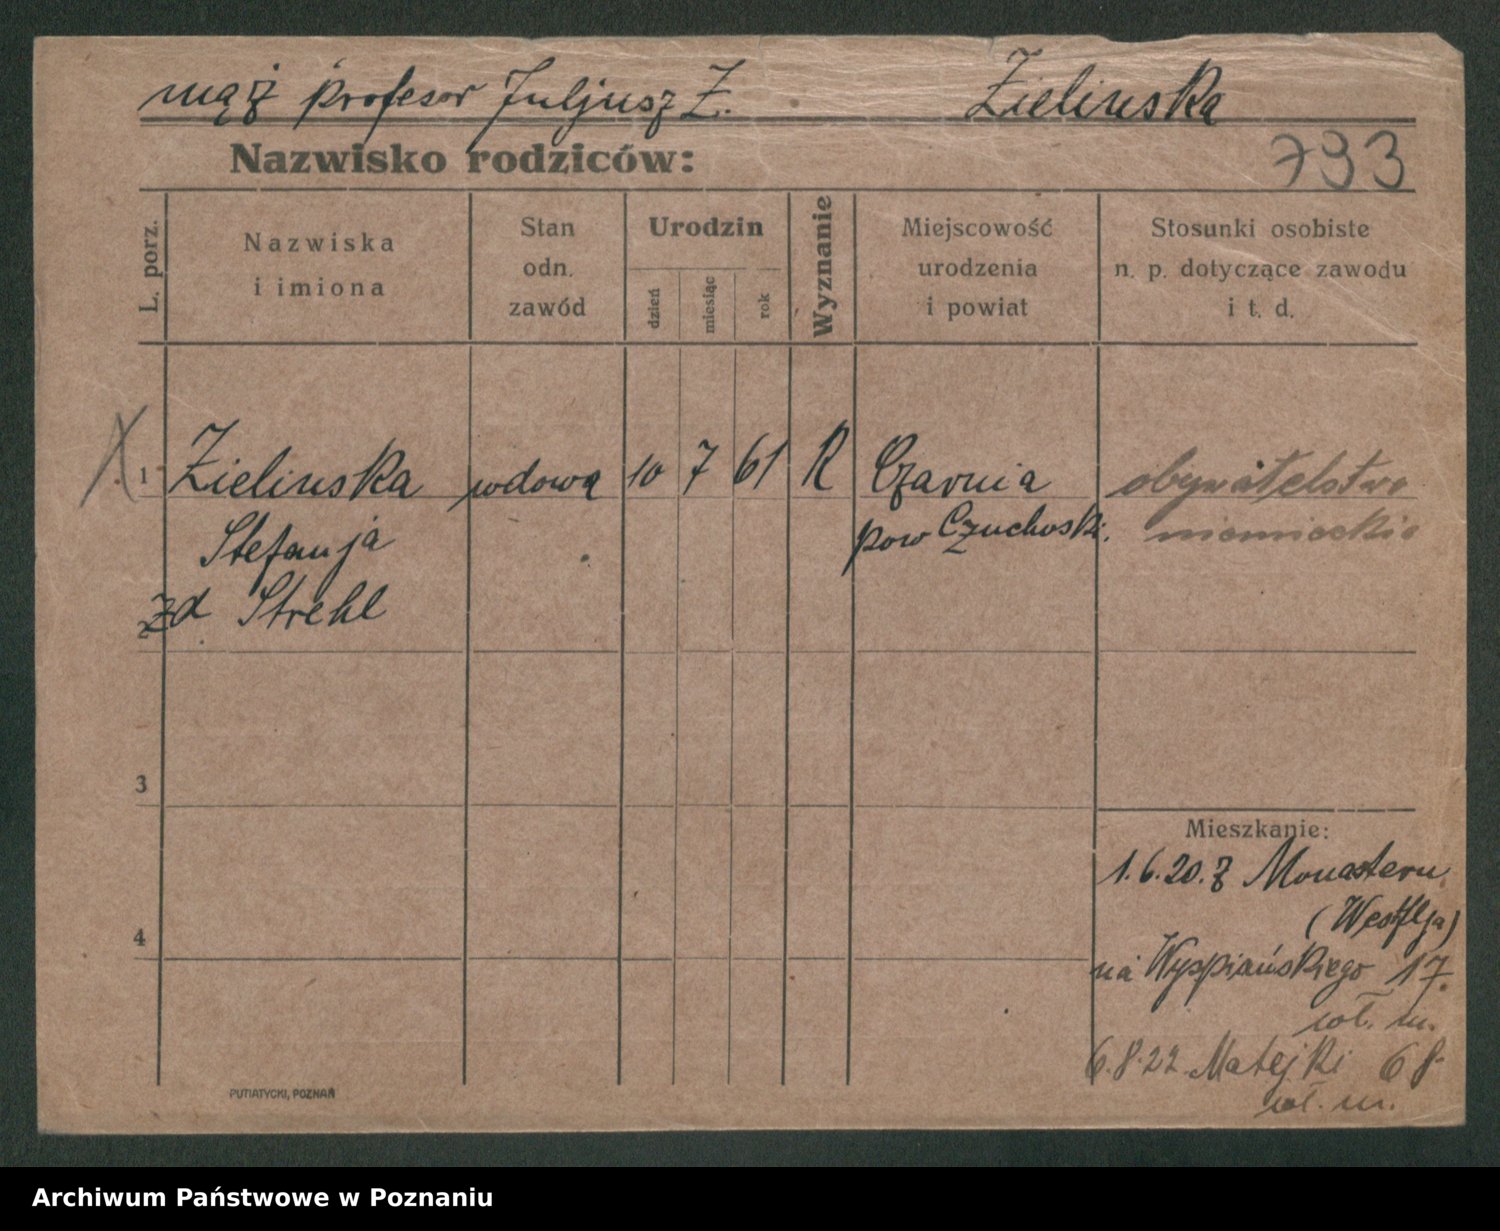 mąż profesor Juljusz Z. Zielinska
Nazwisko rodziców:
793
L. porz.
Nazwiska
i imiona
Stan
odn.
zawód
Urodzin
dzień
miesiąc
rok
Wyznanie
Miejscowość
urodzenia
i powiat
Stosunki osobiste
n. p. dotyczące zawodu
i t. d.
X
1 Zielinska wdowa 10 7 61 R Czarnia obywatelstwo
Stefanja pow Czuchoski. niemieckie
2 zd Strehl
3
Mieszkanie:
1.6.20. z Monasteru
(Westflja)
4
na Wyspiańskiego 17.
wł. m.
6.8.22. Matejki 68.
wł. m.
PUTIATYCKI, POZNAŃ
Archiwum Państwowe w Poznaniu